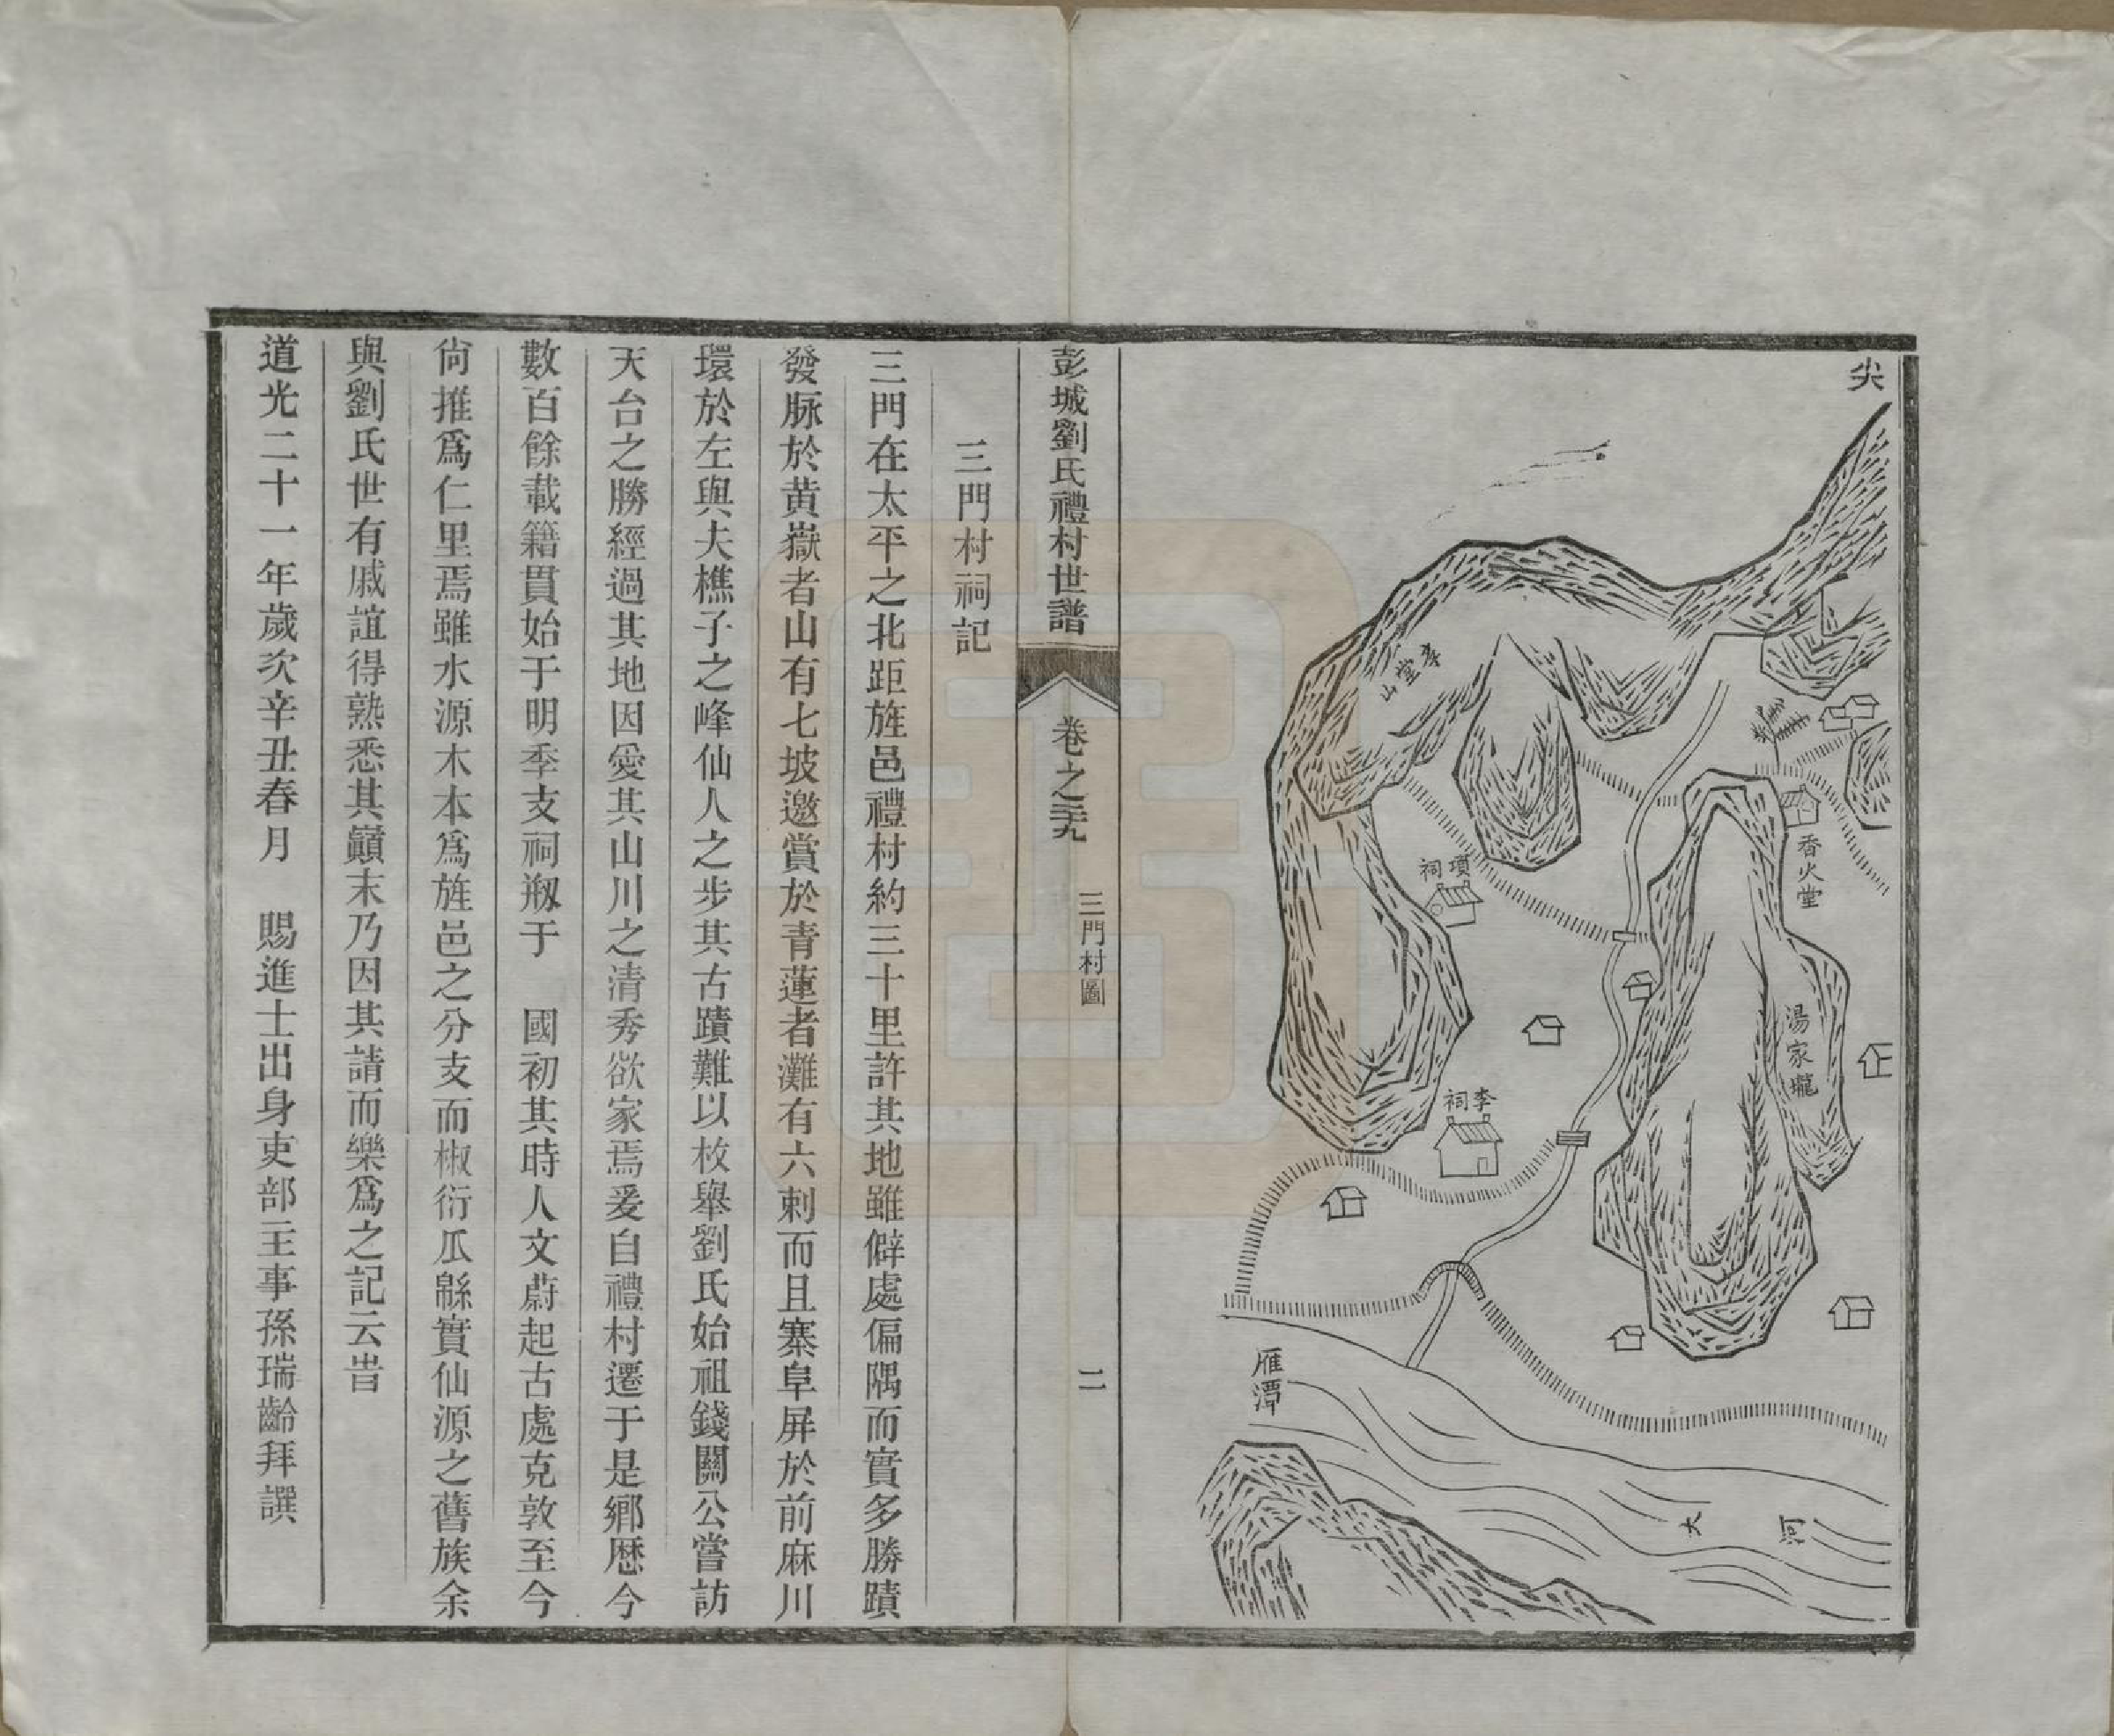 尖
李堂山
項祠
香火堂
湯家壠
李祠
雁潭
大河
彭城劉氏禮村世譜
卷之
三門村圖
二
三門村祠記
三門在太平之北距旌邑禮村約三十里許其地雖僻處偏隅而實多勝蹟
發脉於黄嶽者山有七坡邀賞於青蓮者灘有六刺而且寨阜屏於前麻川
環於左與夫樵子之峰仙人之步其古蹟難以枚舉劉氏始祖錢關公嘗訪
天台之勝經過其地因愛其山川之清秀欲家焉爰自禮村遷于是鄉歷今
數百餘載籍貫始于明季支祠剏于 國初其時人文蔚起古處克敦至今
尙推爲仁里焉雖水源木本爲旌邑之分支而椒衍瓜緜實仙源之舊族余
與劉氏世有戚誼得熟悉其巔末乃因其請而樂爲之記云旹
道光二十一年歲次辛丑春月 賜進士出身吏部主事孫瑞齡拜譔